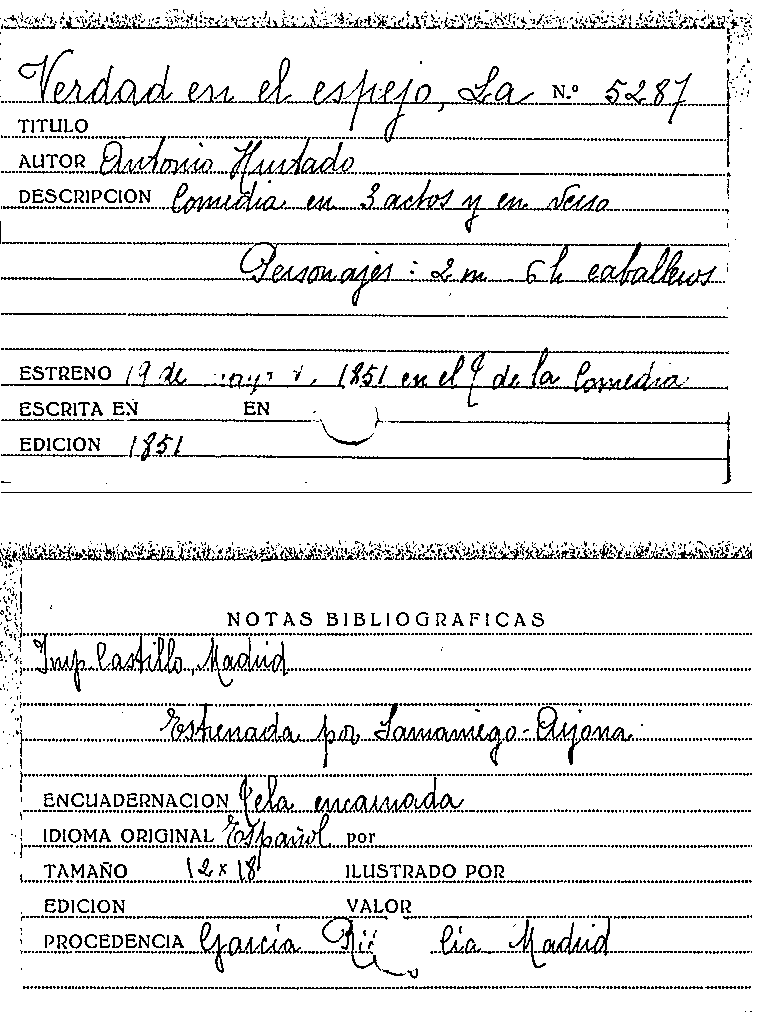 Verdad en el espejo, La N.º 5287
TITULO
AUTOR Antonio Hurtado
DESCRIPCION Comedia en 3 actos y en verso
Personajes : 2 m 6 h caballeros
ESTRENO 19 de 1851 en el T de la Comedia
ESCRITA EN EN
EDICION 1851
NOTAS BIBLIOGRAFICAS
Imp Castillo, Madrid
Estrenada por Samaniego-Arjona
ENCUADERNACION Tela encarnada
IDIOMA ORIGINAL Español por
TAMAÑO 12 x 18 ILUSTRADO POR
EDICION VALOR
PROCEDENCIA García Cia Madrid